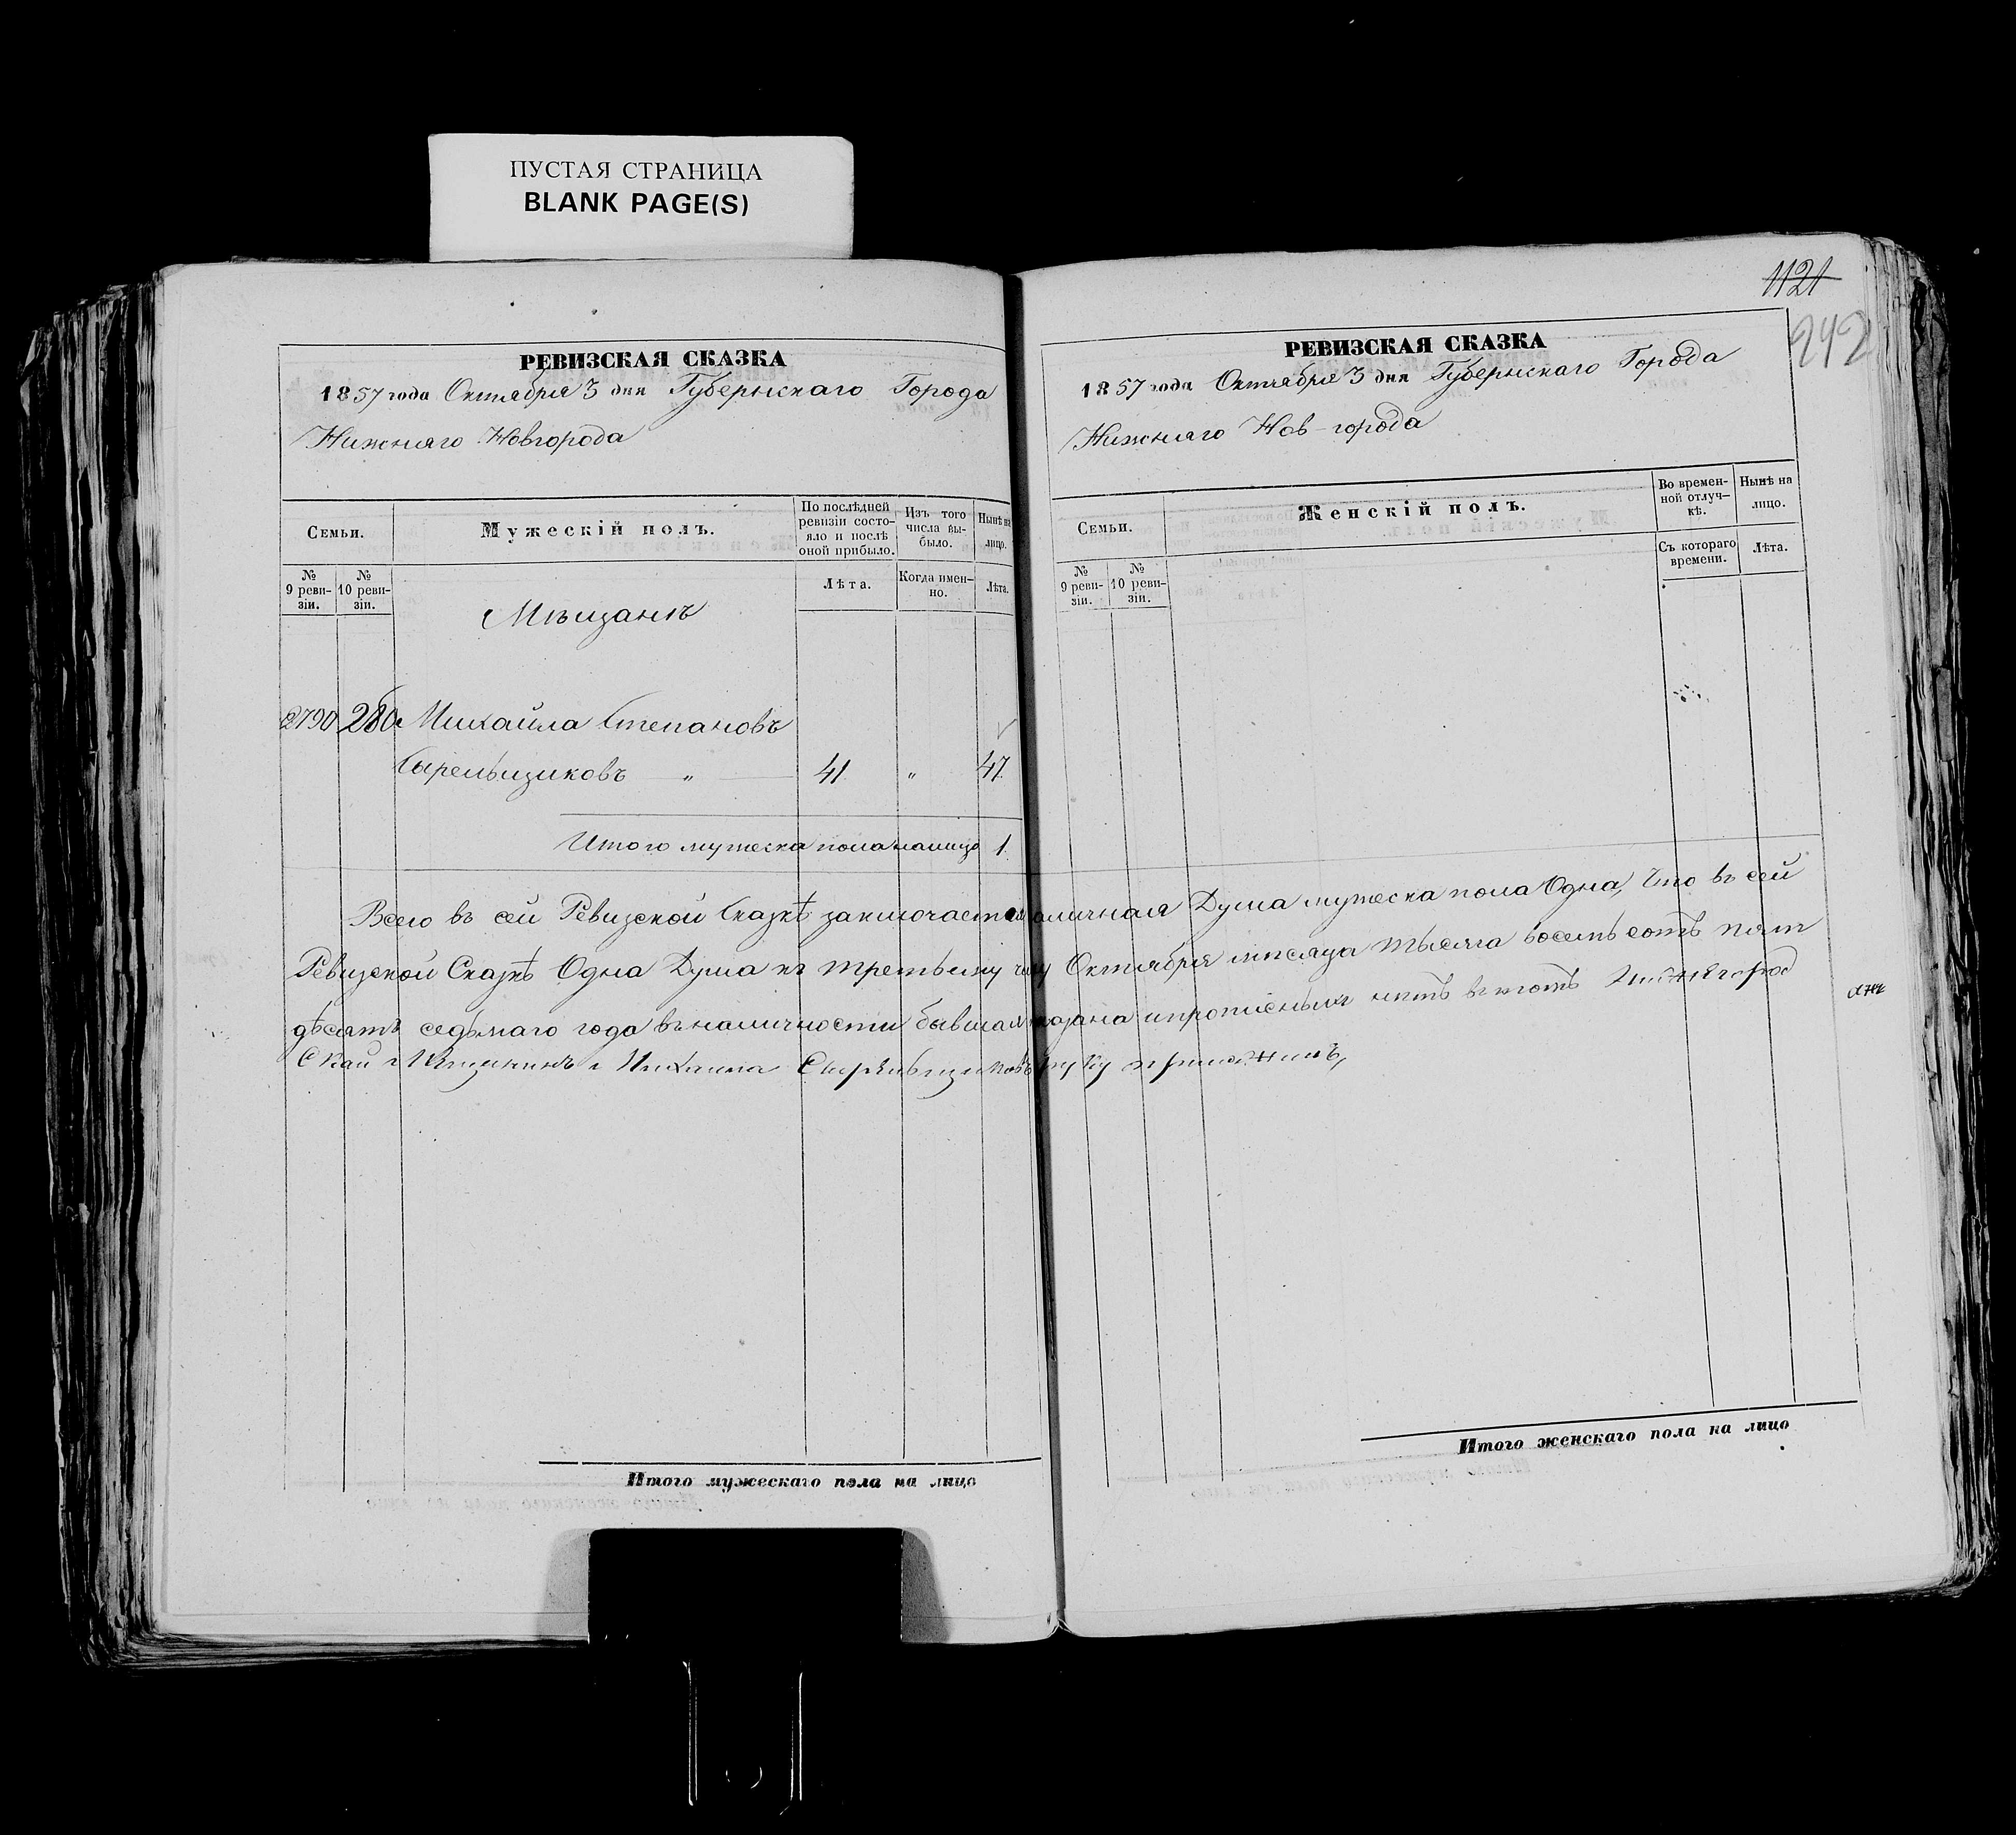 ПУСТАЯ СТРАНИЦА
BLANK PAGE(S)
РЕВИЗСКАЯ СКАЗКА
1857 года Октября 3 дня Губернскаго Города
Нижняго Новгорода
Семьи.
Мужескій полъ.
По послѣдней ревизіи состояло и послѣ оной прибыло.
Изъ того числа выбыло.
Нынѣ на лицо.
№ 9 ревизіи.
№ 10 ревизіи.
Лѣта.
Когда именно.
Лѣта.
Мѣщанъ
2790 280 Михайла Степановъ
Сырельщиковъ — „ — 41 „ 47
Итого мужеска пола налицо 1
1121
242
РЕВИЗСКАЯ СКАЗКА
1857 года Октября 3 дня Губернскаго Города
Нижняго Нов-города
Семьи.
Женскій полъ.
Во временной отлучкѣ.
Нынѣ на лицо.
№ 9 ревизіи.
№ 10 ревизіи.
Съ котораго времени.
Лѣта.
Всего въ сей Ревизской Сказкѣ заключается наличная Душа мужеска пола Одна, Что въ сей
Ревизской Сказкѣ Одна Душа къ третьему числу Октября мѣсяца тысяча восемь сотъ пять
десятъ седьмаго года въ наличности бывшая показана и прописныхъ нѣтъ въ томъ Нижнегород
Скай Мещининъ Михаила Сырельщиковъ руку приложилъ,
Итого мужескаго пола на лицо
Итого женскаго пола на лицо